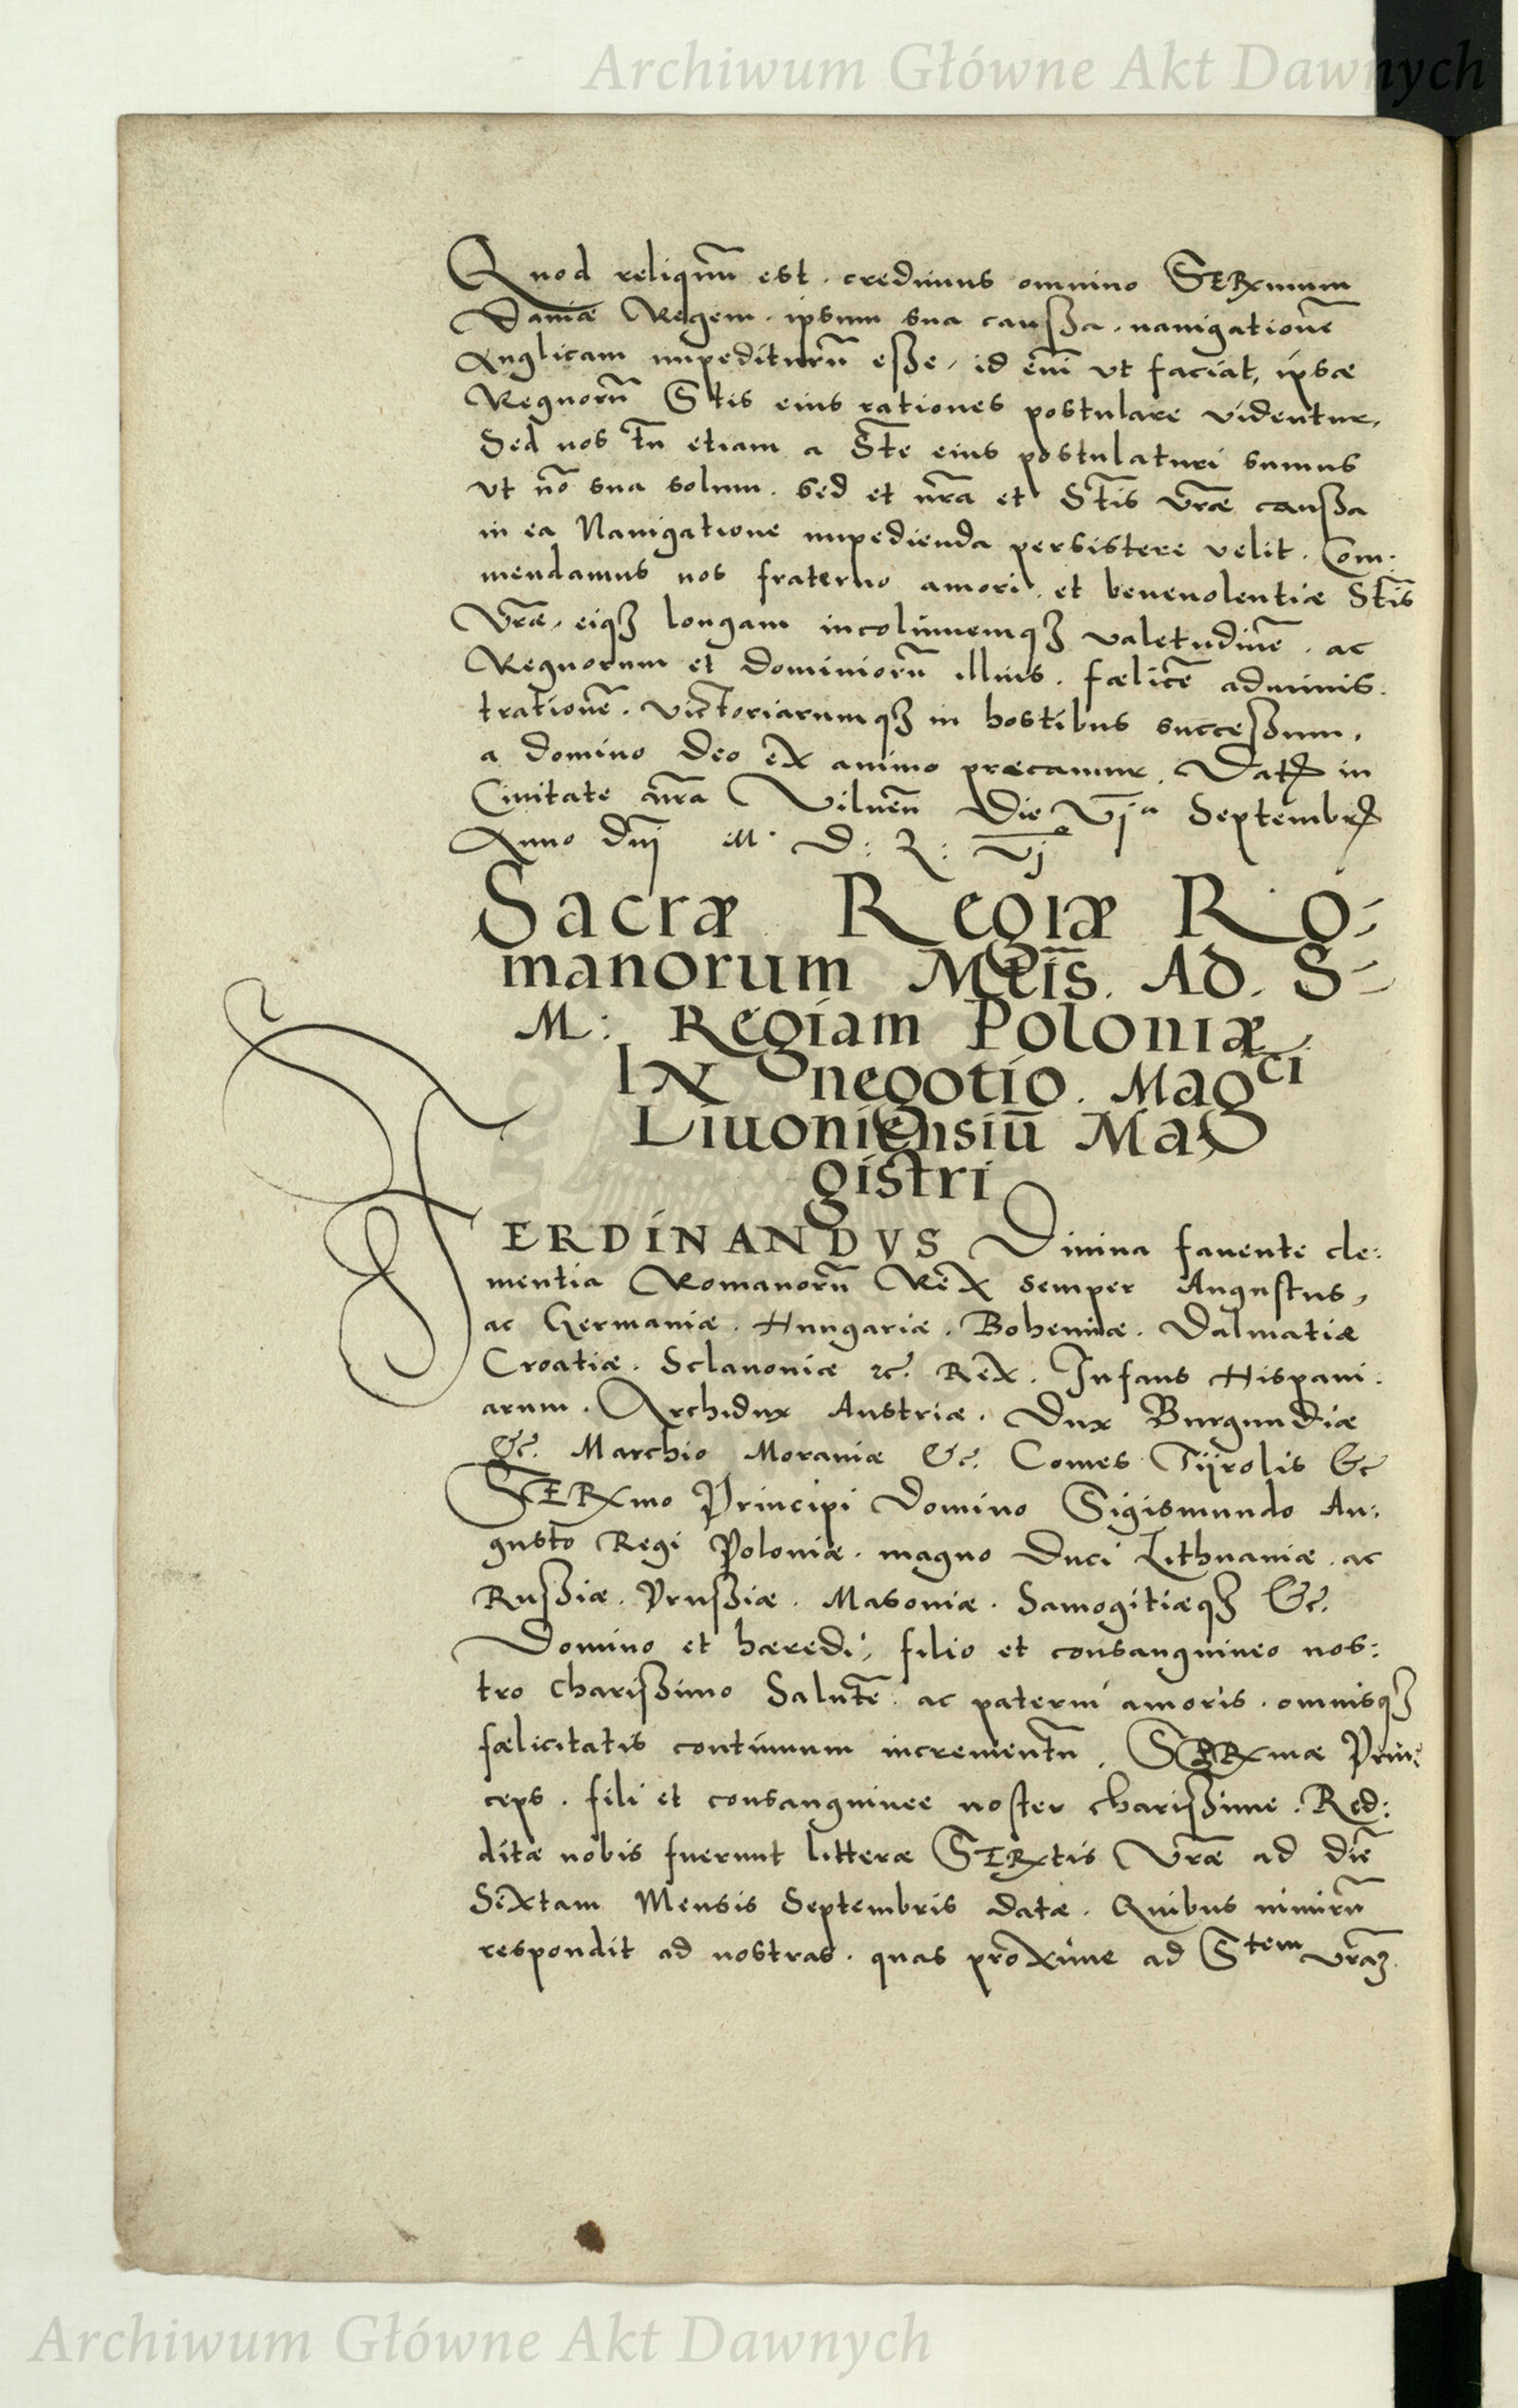 Archiwum Główne Akt Dawnych
Quod reliquũ est. credimus omnino SERxmum
Daniæ Regem. ipsum sua caußa. nauigationẽ
Anglicam impediturũ eße, id eni̅ ut faciat, ipsæ
Regnorũ Stis eius rationes postulare videntur,
Sed nos tn̅ etiam a Ste̅ eius postulaturi sumus
ut no̅ sua solum. sed et nr̅a et Sti̅s Vr̅æ caußa
in ea Nauigatione impedienda persistere velit. Com:
mendamus nos fraterno amori. et beneuolentiæ Sti̅s
Vr̅æ, eiqꝫ longam incolumemqꝫ valetudinẽ. ac
Regnorum et dominiorũ illius. fælicẽ adminis:
trationẽ. victoriarumqꝫ in hostibus succeßum,
a domino Deo ex animo præcamur. Datꝭ in
Ciuitate nr̅a Vilneñ Die Vjᵃ Septembrꝭ
Anno Dn̅j M. D: L: Vj
Sacræ Regiæ Ro:
manorum Mti̅s. Ad. S:
M: Regiam Poloniæ
IN negotio. Magci
Liuoniensiũ Ma
gistri
FERDINANDVS Diuina fauente cle:
mentia Romanorũ Rex semper Augustus,
ac Germaniæ. Hungariæ. Bohemiæ. Dalmatiæ
Croatiæ. Sclauoniæ ⁊c. Rex. Infans Hispani:
arum. Archidux Austriæ. Dux Burgundiæ
&c. Marchio Morauiæ &c. Comes Tÿrolis &c
SERxmo Principi Domino Sigismundo Au:
gusto Regi Poloniæ. magno Duci Lithuaniæ. ac
Rußiæ. Prußiæ. Masouiæ. Samogitiæqꝫ &c.
Domino et hæredi, filio et consanguineo nos:
tro charißimo Salutẽ. ac paterni amoris. omnisqꝫ
fælicitatis continuum incrementũ. SERxmæ Prin:
ceps. fili et consanguinee noster charißime. Red:
ditæ nobis fuerunt litteræ SERxtis Vr̅æ ad diẽ
Sixtam Mensis Septembris datæ. Quibus nimirũ
respondit ad nostras. quas proxime ad Stem vr̅aꝫ
Archiwum Główne Akt Dawnych